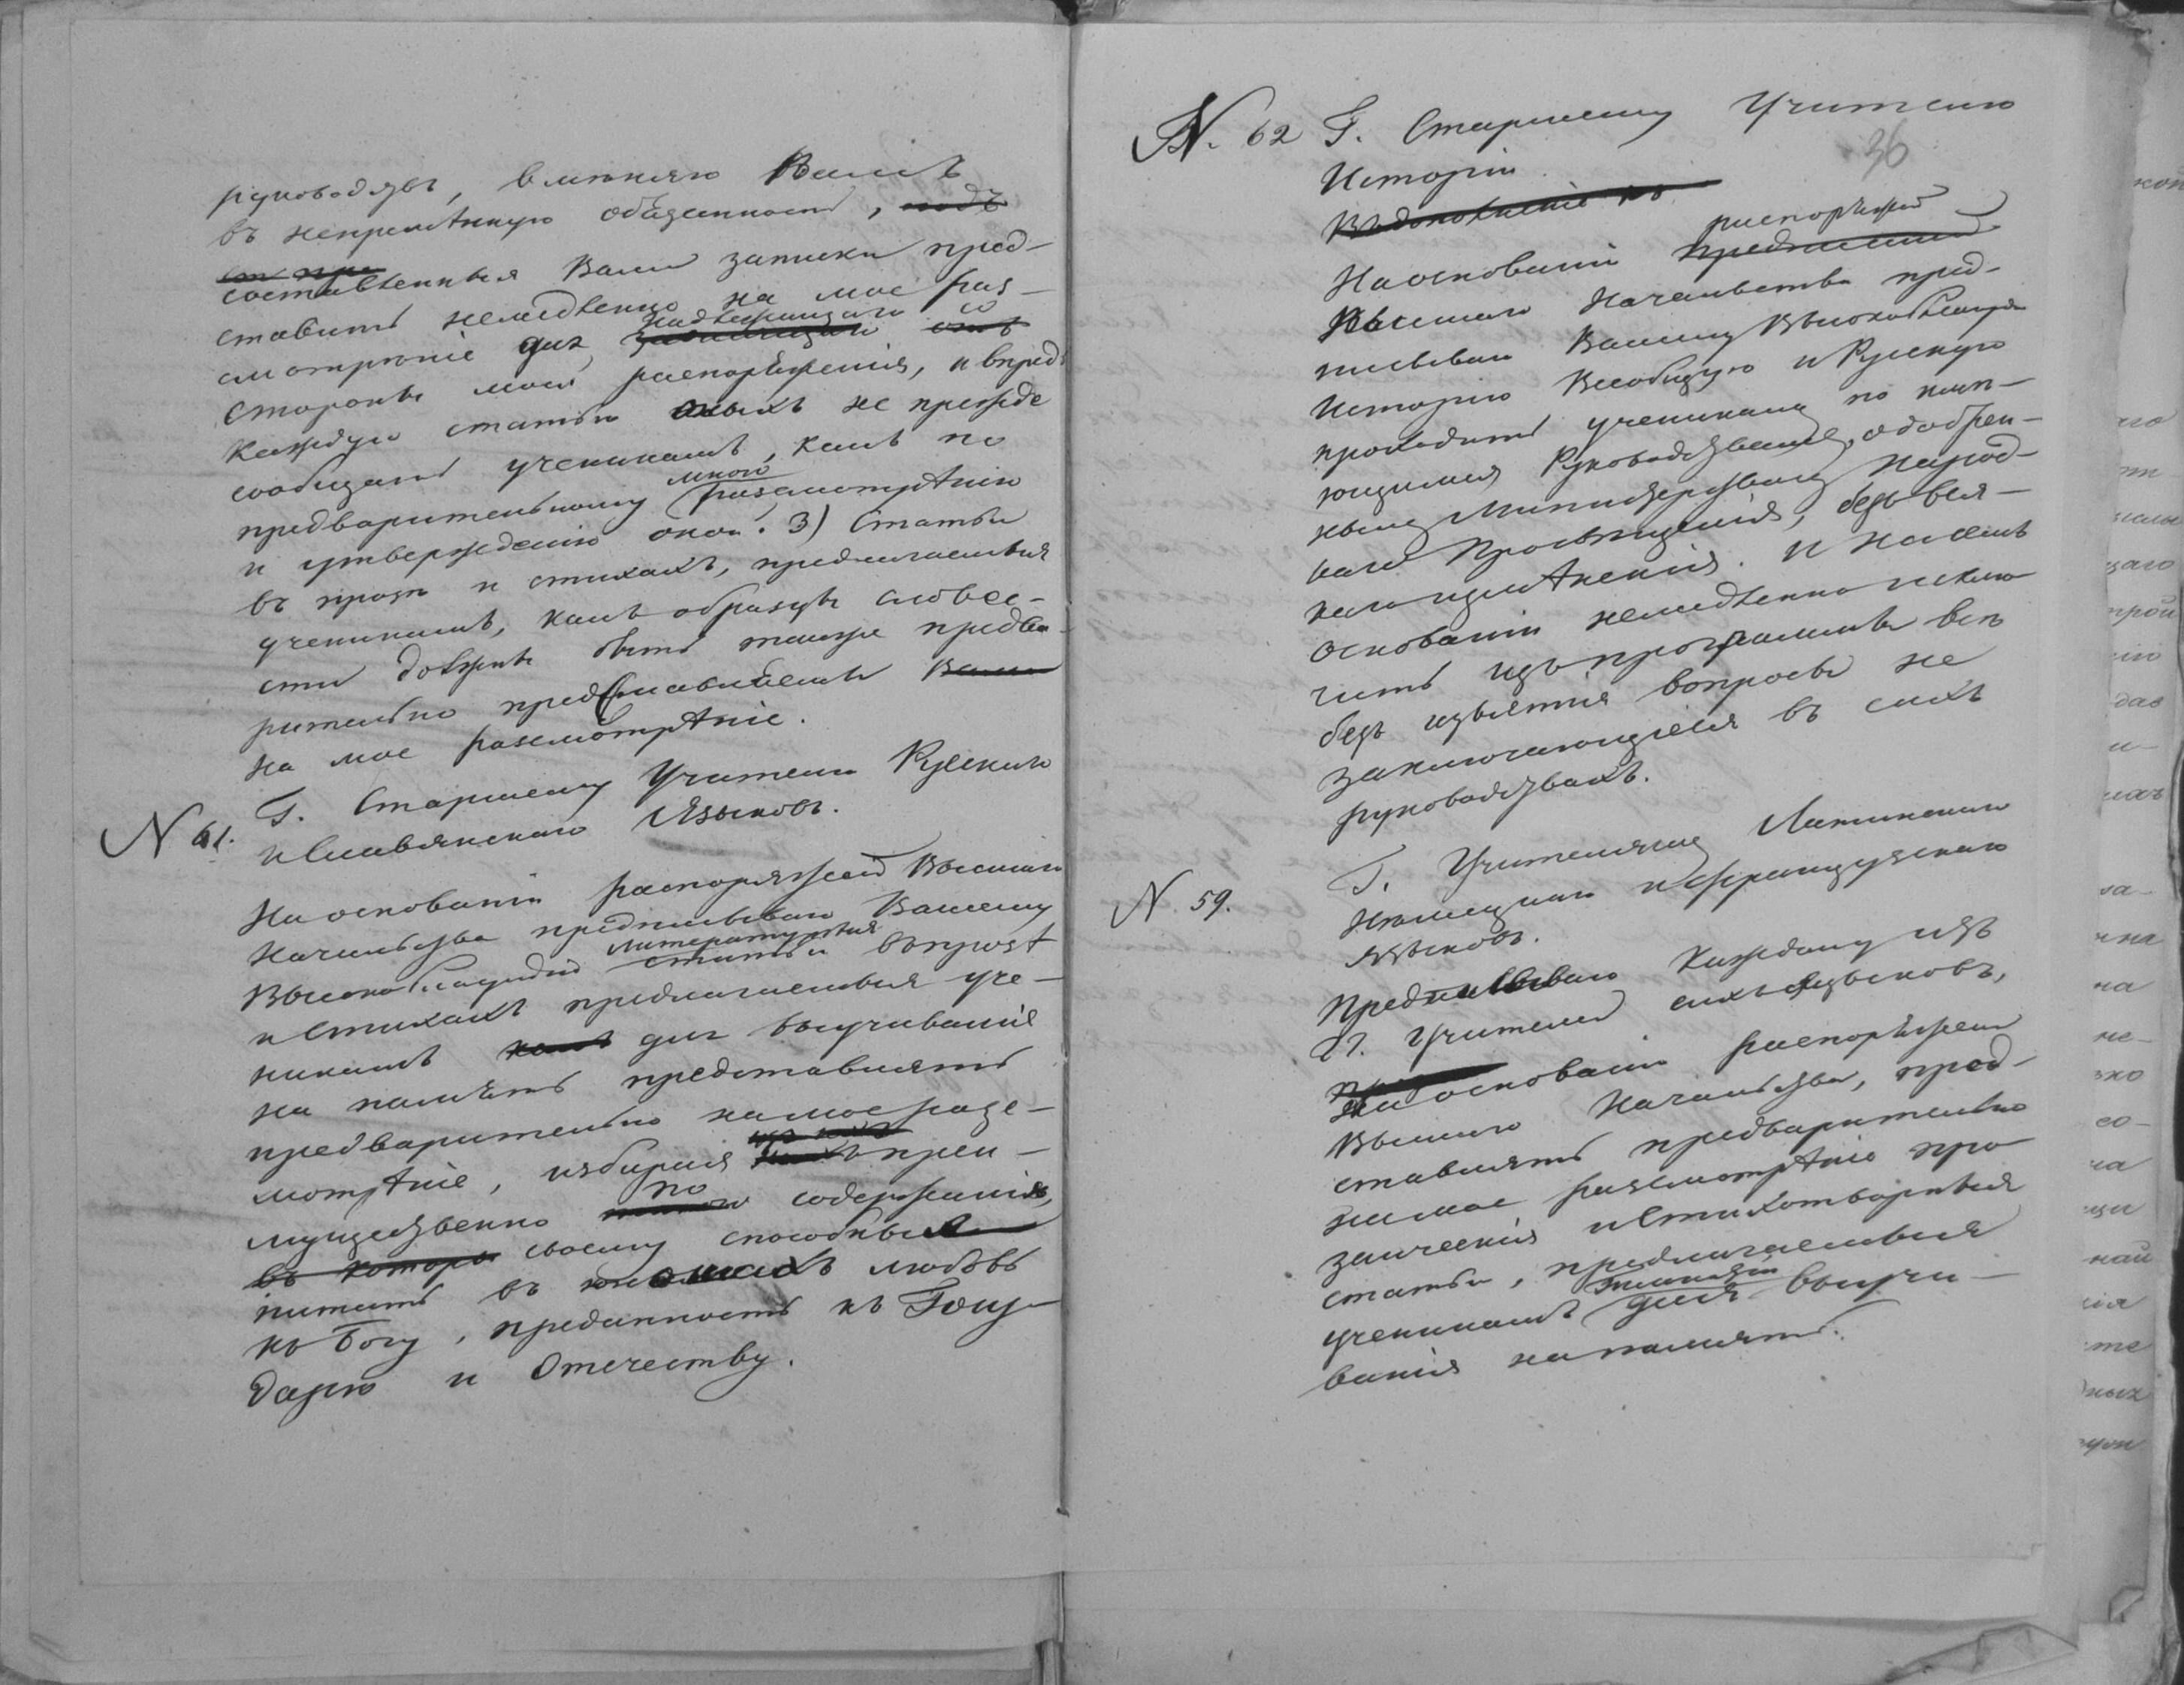 руководствъ, вмѣняю Вамъ
въ непремѣнную обязанность, подъ
составленныя Вами записки пред-
ставить немедленно на мое раз-
смотрѣніе для надлежащаго со
стороны моей распоряженія, и впредь
каждую статью оныхъ не прежде
сообщать ученикамъ, какъ по
предварительному мною разсмотрѣнію
и утвержденію оной. 3) Статьи
въ прозѣ и стихахъ, предлагаемыя
ученикамъ, какъ образцы словес-
сти должны быть также предва-
рительно представляемы Вами
на мое разсмотрѣніе.
N 61. Г. Старшему Учителю Русскаго
и Славянскаго Языковъ.
На основаніи распоряженій Высшаго
Начальства предписываю Вашему
Высокоблагородію литературныя статьи въ прозѣ
и стихахъ предлагаемыя уче-
никамъ какъ для выучиванія
на память представлять
предварительно на мое разс-
мотрѣніе, избирая изъ нихъ преи-
мущественно по содержанію
въ которы своему способныя
питать въ юношахъ любовь
къ Богу, преданность къ Госу-
дарю и Отечеству.
N. 62 Г. Старшему Учителю
36
Исторіи
Въ дополненіе къ
На основаніи распоряженій предписанія
Высшаго Начальства пред-
писываю Вашему Высокоблагородію
Исторію Всеобщую и Русскую
проходить ученикамъ по имѣ-
ющимся Руководствамъ, одобрен-
нымъ Министерствомъ Народ-
наго Просвѣщенія, безъ вся-
каго измѣненія. И на семъ
основаніи немедленно исклю-
чить изъ программы всѣ
безъ изъятія вопросы не
заключающіеся въ сихъ
руководствахъ.
N. 59. Г. Учителямъ Латинскаго
Нѣмецкаго и Французскаго
языковъ.
Предписываю каждому изъ
Гг. Учителей сихъ языковъ,
на основаніи распоряженій
Высшаго Начальства, пред-
ставлять предварительно
на мое разсмотрѣніе про-
заическія и стихотворныя
статьи, предлагаемыя
ученикамъ гимназіи для выучи-
ванія на память.